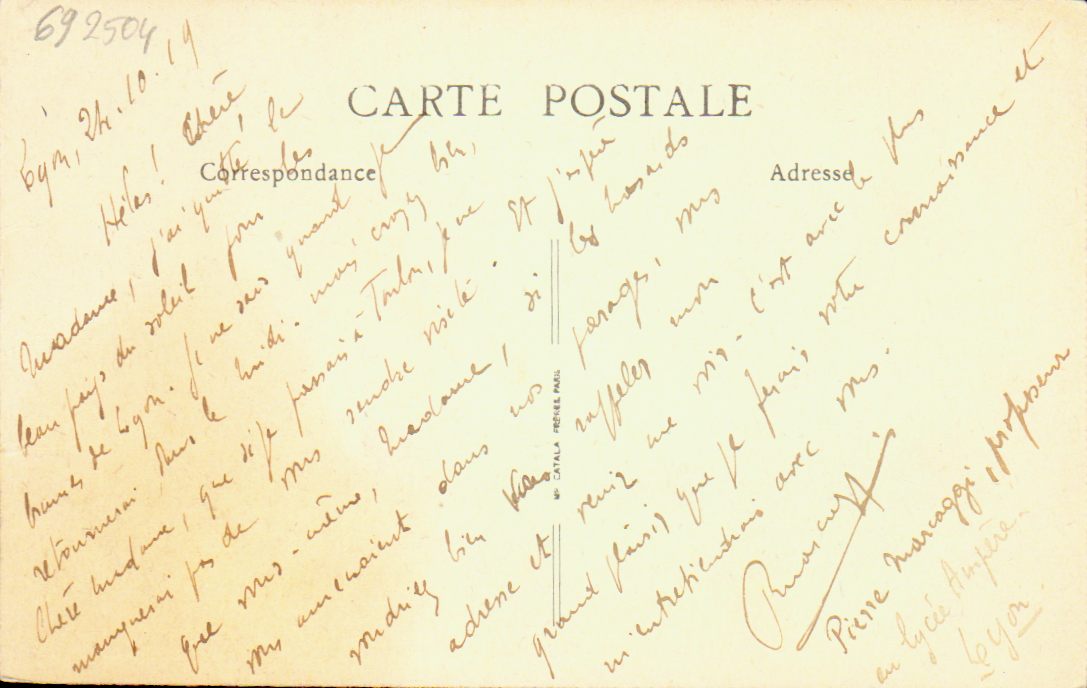 692504
CARTE POSTALE
Correspondance
Adresse
Lyon, 24.10.19
Hélas! Chère
Madame, j'ai quitté le
beau pays du soleil pour les
brumes de Lyon. Je ne sais quand je
retournerai dans le midi - mais croyez bien,
Chère madame, que si je passais à Toulon, je ne
manquerai pas de vous rendre visite. Et j'espère
que vous-même, Madame, si les hasards
vous amenaient dans nos parages, vous
voudriez bien vous rappeler mon
adresse et venir me voir. C'est avec le plus
grand plaisir que je ferais votre connaissance et
m'entretiendrais avec vous.
PMarcaggi
Pierre Marcaggi, professeur
au lycée Ampère.
Lyon.
IMP. CATALA FRÈRES, PARIS